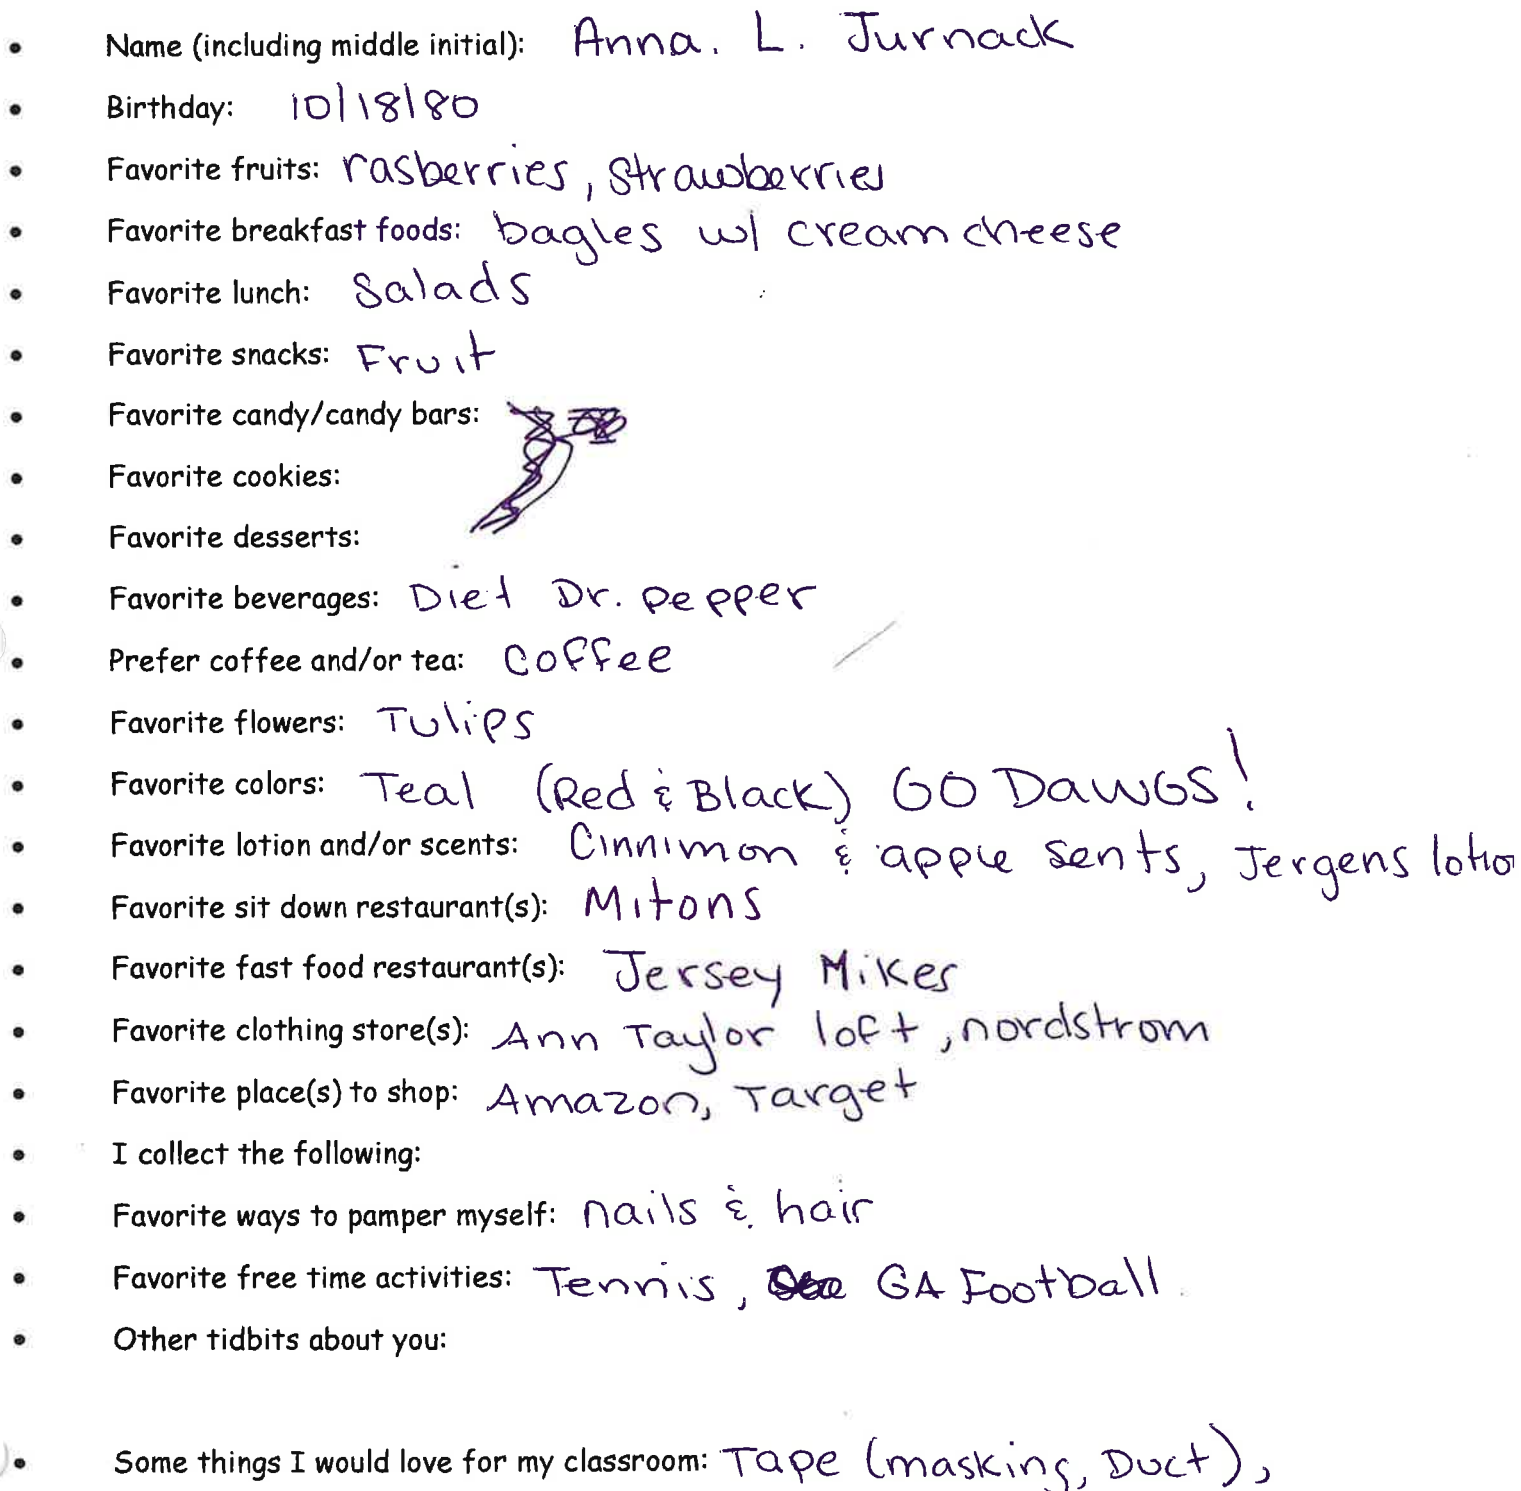 • Name (including middle initial): Anna. L. Jurnack
• Birthday: 10/18/80
• Favorite fruits: rasberries, strawberries
• Favorite breakfast foods: bagles w/ cream cheese
• Favorite lunch: Salads
• Favorite snacks: Fruit
• Favorite candy/candy bars:
• Favorite cookies:
• Favorite desserts:
• Favorite beverages: Diet Dr. pepper
• Prefer coffee and/or tea: Coffee
• Favorite flowers: Tulips
• Favorite colors: Teal (Red & Black) GO DAWGS!
• Favorite lotion and/or scents: Cinnimon & apple sents, Jergens lotio
• Favorite sit down restaurant(s): Mitons
• Favorite fast food restaurant(s): Jersey Mikes
• Favorite clothing store(s): Ann Taylor loft, nordstrom
• Favorite place(s) to shop: Amazon, Target
• I collect the following:
• Favorite ways to pamper myself: nails & hair
• Favorite free time activities: Tennis, GA Football
• Other tidbits about you:
• Some things I would love for my classroom: Tape (masking, Duct),